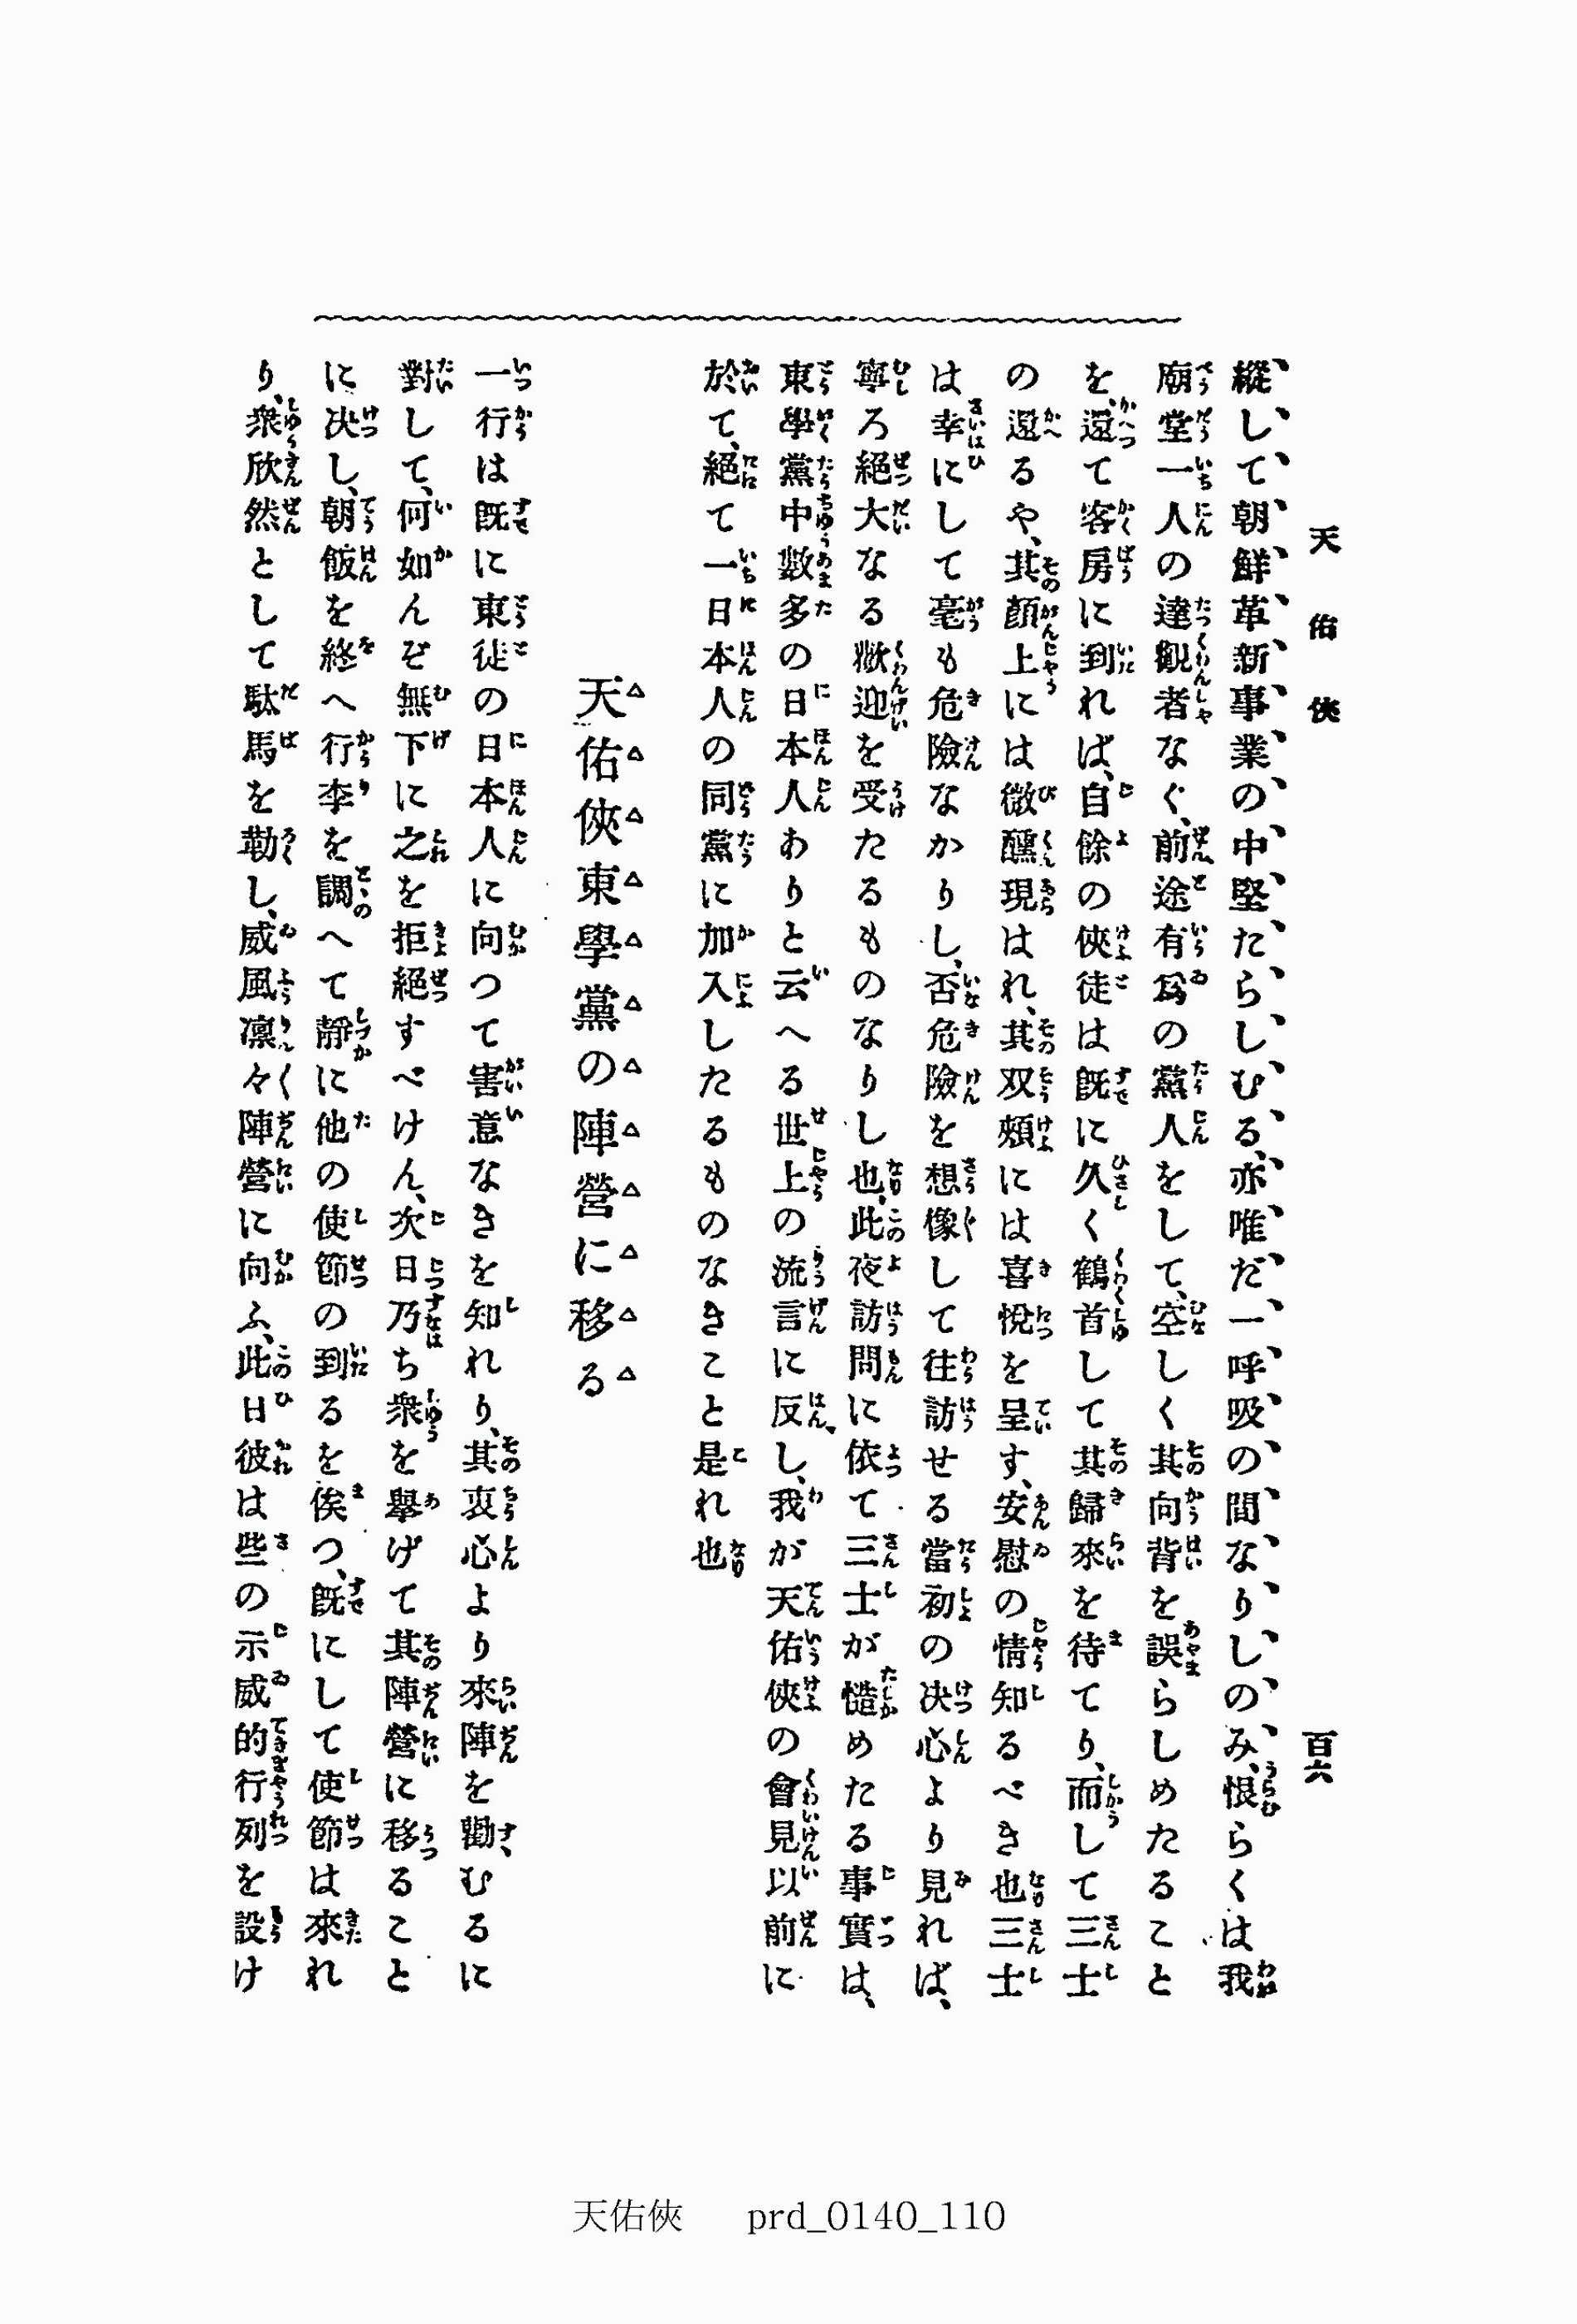 天佑俠
百六
縱して朝鮮革新事業の中堅たらしむる、亦唯だ一呼吸の間なりしのみ、恨らくは我
廟堂一人の達觀者なく、前途有爲の黨人をして、空しく其向背を誤らしめたること
を、還て客房に到れば、自餘の俠徒は既に久く鶴首して其歸來を待てり、而して三士
の還るや、其顏上には微醺現はれ、其双頰には喜悅を呈す、安慰の情知るべき也三士
は幸にして毫も危險なかりし、否危險を想像して往訪せる當初の决心より見れば、
寧ろ絕大なる歡迎を受たるものなりし也、此夜訪問に依て三士が慥めたる事實は、
東學黨中數多の日本人ありと云へる世上の流言に反し、我が天佑俠の會見以前に
於て、絕て一日本人の同黨に加入したるものなきこと是れ也
天佑俠東學黨の陣營に移る
一行は既に東徒の日本人に向つて害意なきを知れり、其衷心より來陣を勸むるに
對して、何如んぞ無下に之を拒絕すべけん、次日乃ち衆を擧げて其陣營に移ること
に决し、朝飯を終へ行李を調へて靜に他の使節の到るを俟つ、既にして使節は來れ
り、衆欣然として駄馬を勒し、威風凛々陣營に向ふ、此日彼は些の示威的行列を設け
天佑俠 prd_0140_110